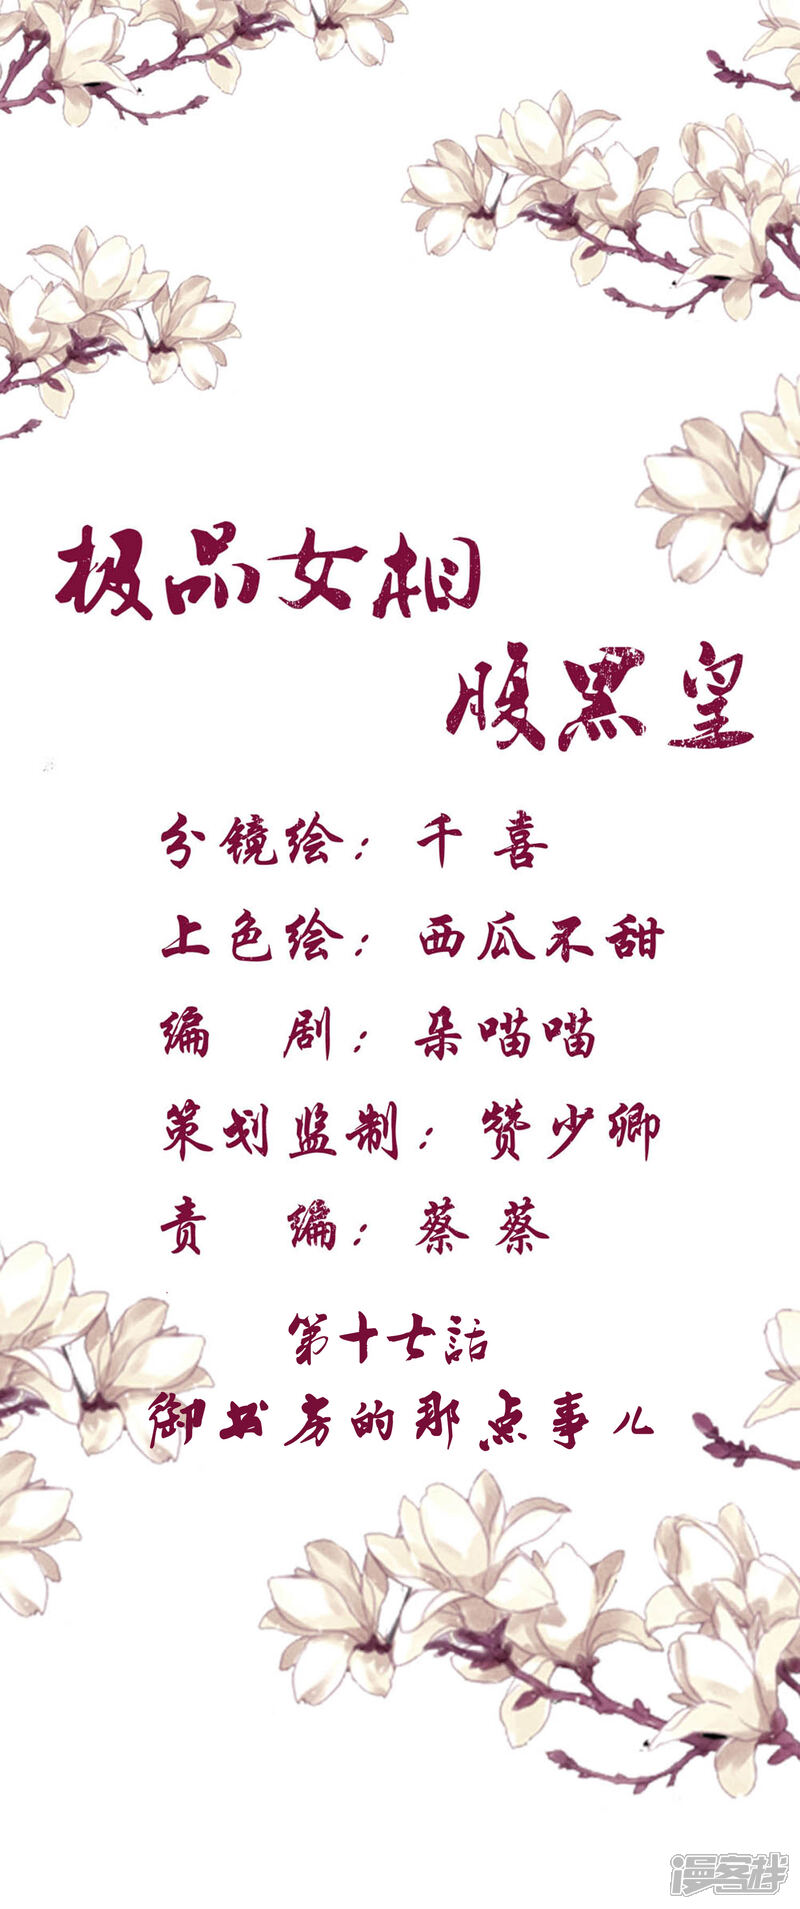 极品女相
腹黑皇
分镜绘：千喜
上色绘：西瓜不甜
编 剧：朵喵喵
策划监制：赞少卿
责 编：蔡蔡
第十七話
御书房的那点事儿
漫客栈